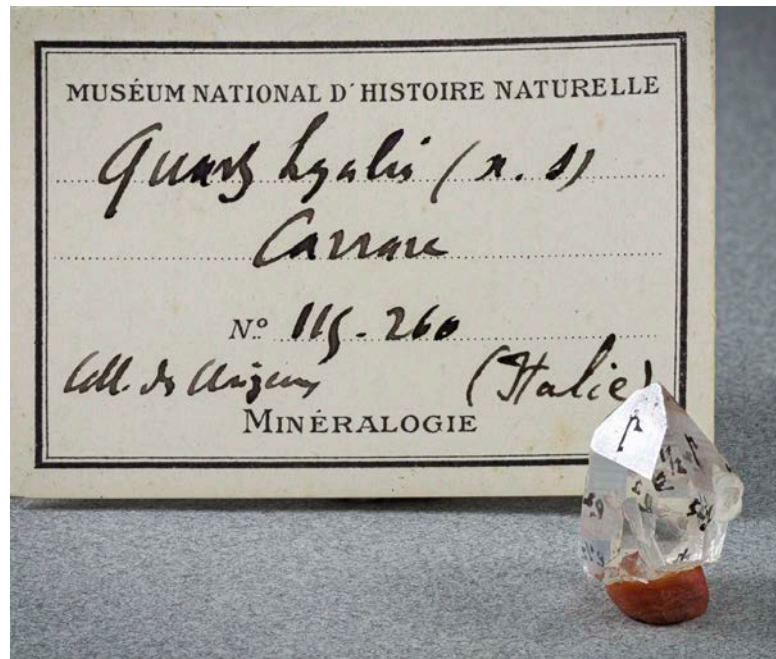 MUSÉUM NATIONAL D'HISTOIRE NATURELLE
Quartz hyalin (n. s)
Carrare
No. 115-260
Coll. des
(Italie)
MINÉRALOGIE
p